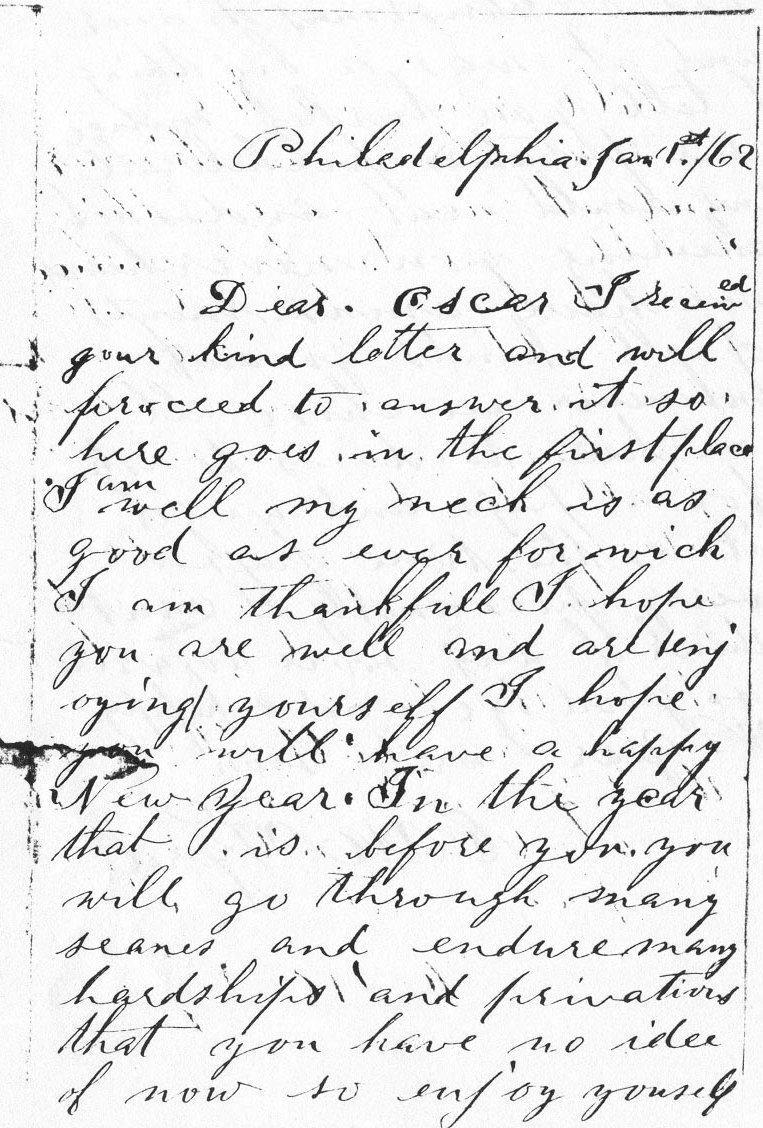 Philadelphia. Jan 1.st/62
Dear. Oscar I recieved
your kind letter and will
proceed to answer it so
here goes in the first place
I am well my neck is as
good as ever for wich
I am thankfull I hope
you are well and are enj
oying yourself I hope
you will have a happy
New Year. In the year
that is before you you
will go through many
seanes and endure many
hardships and privations
that you have no idee
of now so enjoy youself